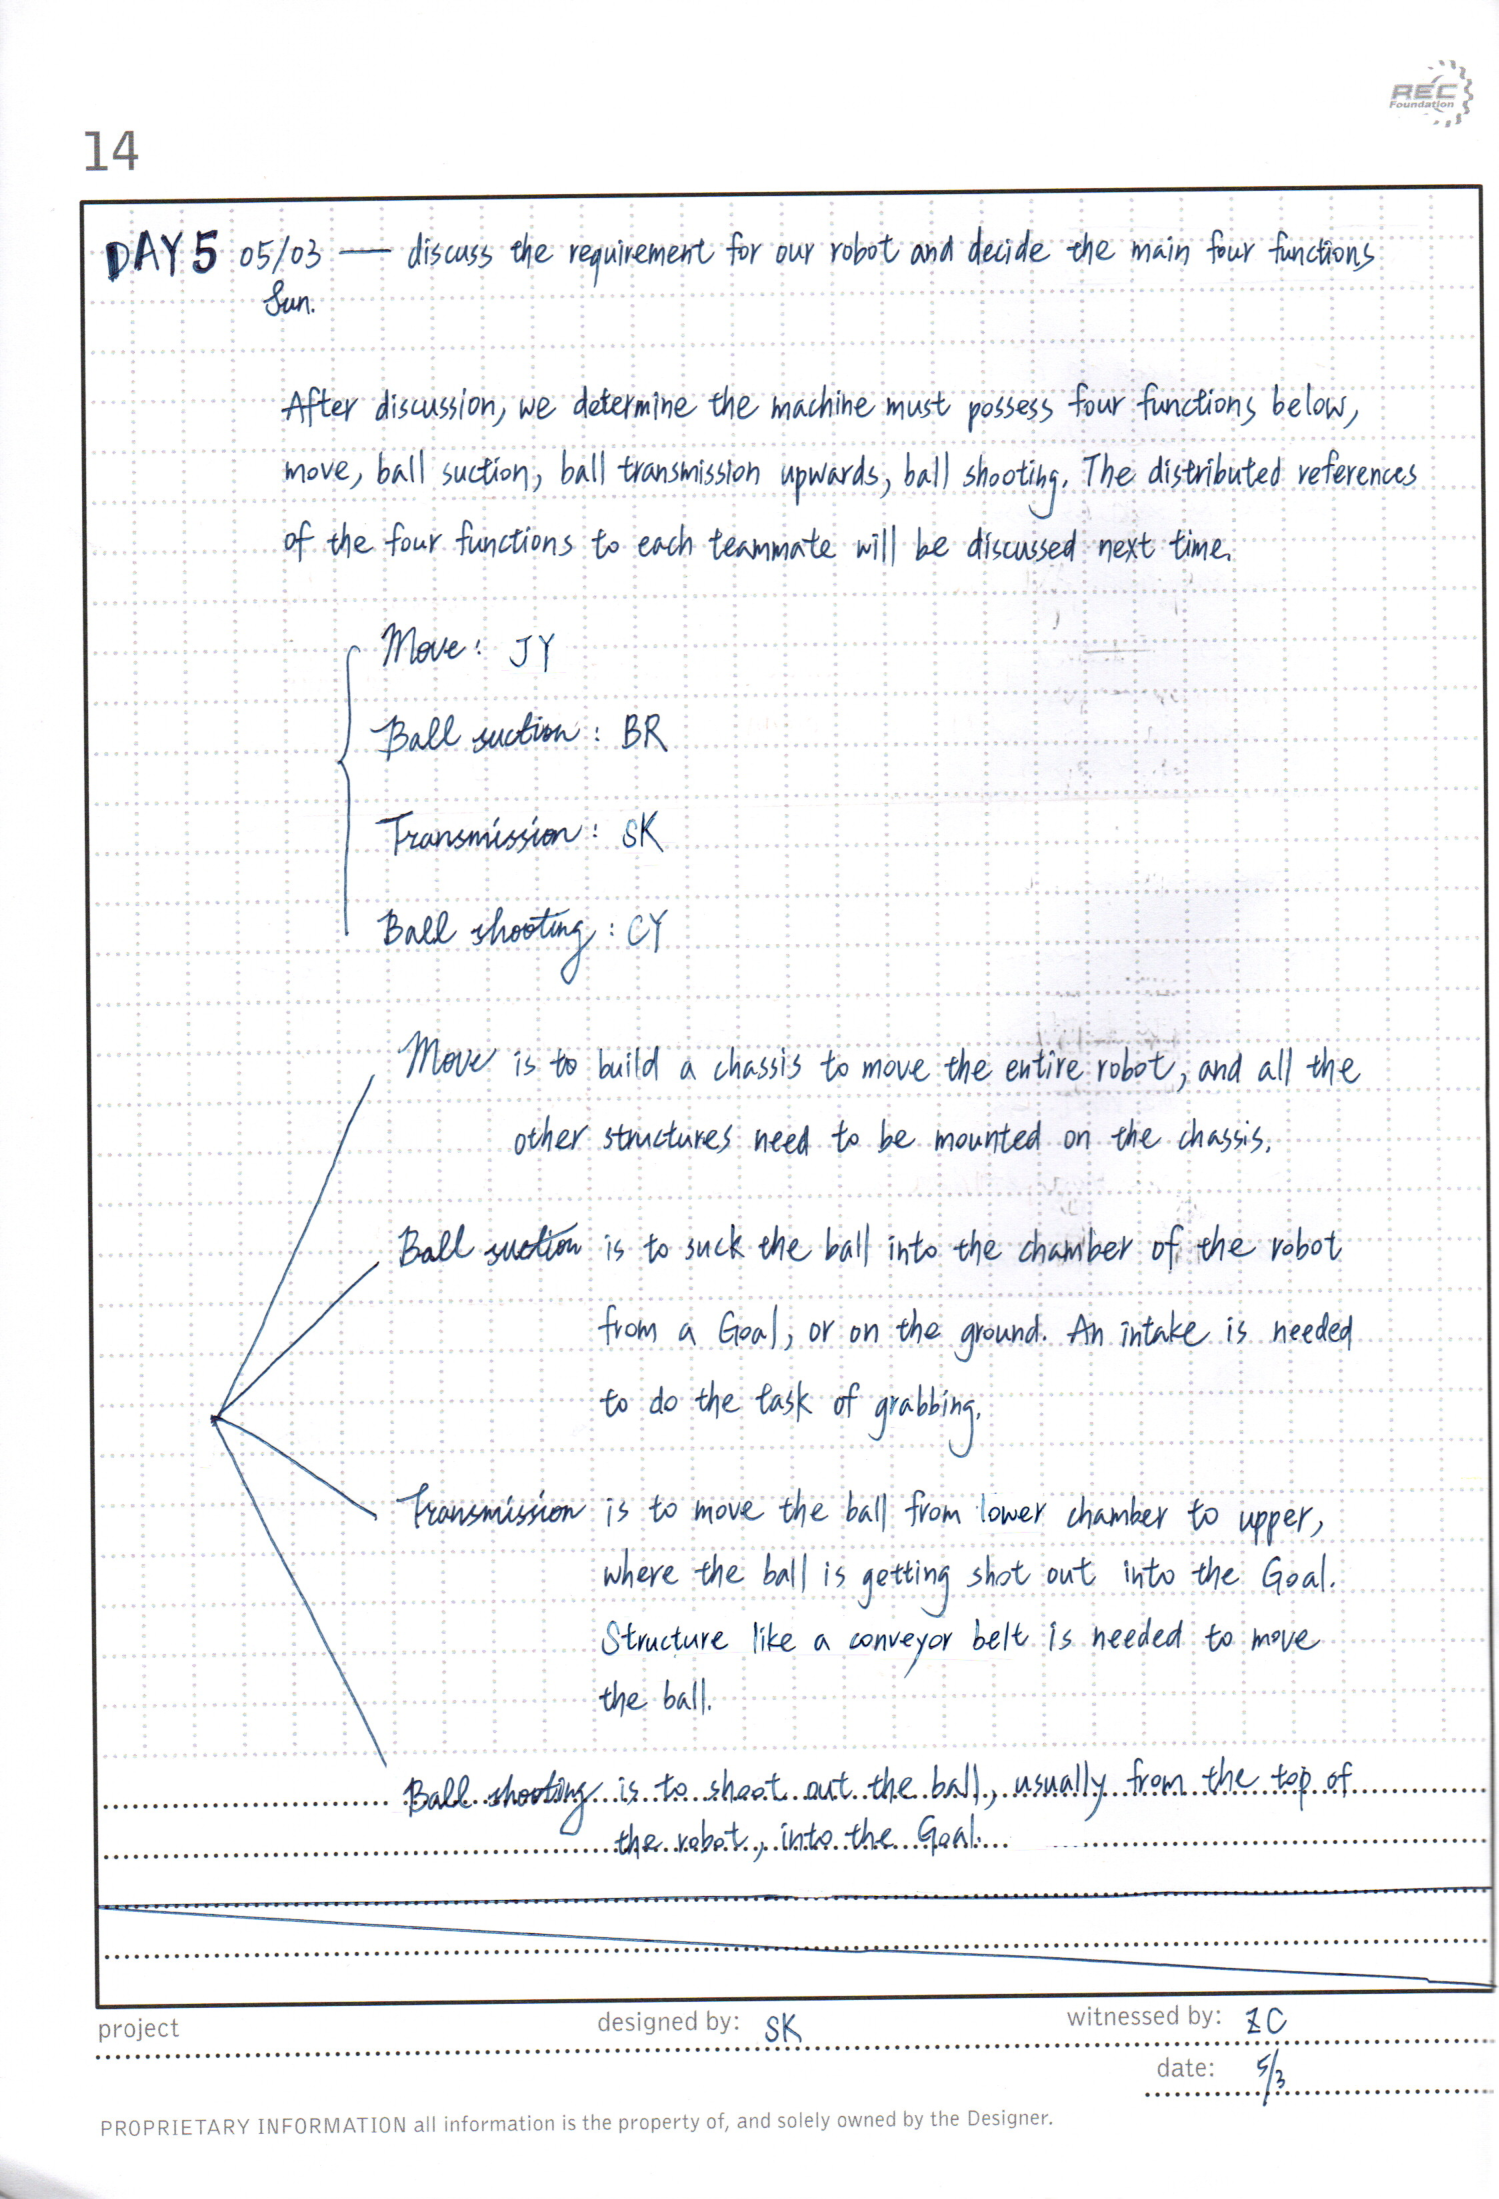 REC
Foundation
14
DAY 5 05/03 — discuss the requirement for our robot and decide the main four functions
Sun.
After discussion, we determine the machine must possess four functions below,
move, ball suction, ball transmission upwards, ball shooting. The distributed references
of the four functions to each teammate will be discussed next time.
Move: JY
Ball suction: BR
Transmission: SK
Ball shooting: CY
Move is to build a chassis to move the entire robot, and all the
other structures need to be mounted on the chassis.
Ball suction is to suck the ball into the chamber of the robot
from a Goal, or on the ground. An intake is needed
to do the task of grabbing.
Transmission is to move the ball from lower chamber to upper,
where the ball is getting shot out into the Goal.
Structure like a conveyor belt is needed to move
the ball.
Ball shooting is to shoot out the ball, usually from the top of
the robot, into the Goal.
project designed by: SK witnessed by: ZC
date: 5/3
PROPRIETARY INFORMATION all information is the property of, and solely owned by the Designer.